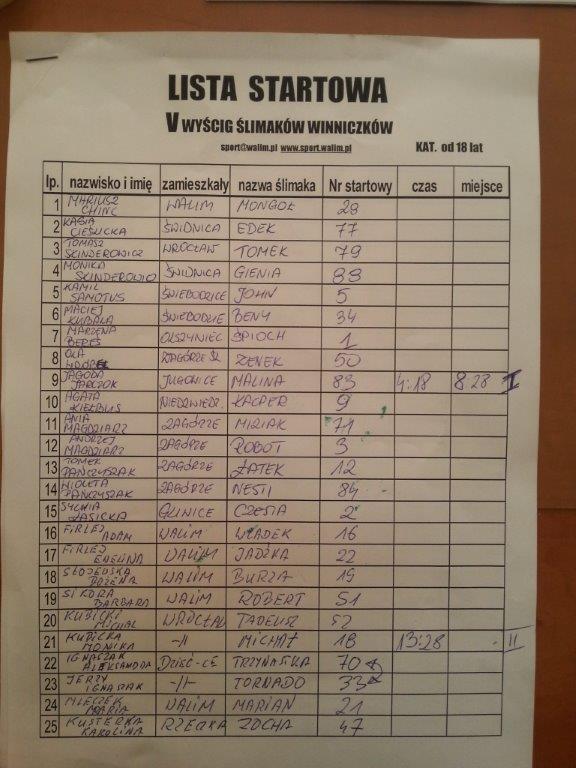 LISTA STARTOWA
V WYŚCIG ŚLIMAKÓW WINNICZKÓW
sport@walim.pl www.sport.walim.pl KAT. od 18 lat
lp. nazwisko i imię zamieszkały nazwa ślimaka Nr startowy czas miejsce
1 MARIUSZ CHINC WALIM MONGOŁ 28
2 KASIA CIEŚLICKA ŚWIDNICA EDEK 77
3 TOMASZ SKINDEROWICZ WROCŁAW TOMEK 79
4 MONIKA ŚWIDNICA GIENIA 88
5 KAMIL SAMOTUS ŚWIEBODZICE JOHN 5
6 MACIEJ KUBALA BENY 34
7 MARZENA BEREŚ OLSZYNIEC ŚPIOCH 1
8 OLA ZAGÓRZE ŚL ZENEK 50
9 JAGODA JARCZOK JUGOWICE MALINA 83 4:18 8 28 I
10 AGATA KIEŁBUS KACPER 9
11 ANIA MAGDZIARZ ZAGÓRZE 71
12 ANDRZEJ MAGDZIARZ ZAGÓRZE ROBOT 3
13 TOMEK PAŃCZYSZAK ZAGÓRZE ŁATEK 12
14 WIOLETA PAŃCZYSZAK ZAGÓRZE NESTI 84
15 SYLWIA ŁASICKA GLINICE CZESIA 2
16 FIRLEJ ADAM WALIM WŁADEK 16
17 FIRLEJ EWELINA WALIM JADZKA 22
18 BOŻENA WALIM BURZA 19
19 SIKORA BARBARA WALIM ROBERT 51
20 KUBICKI MICHAŁ WROCŁAW TADEUSZ 52
21 KUBICKA MONIKA -||- MICHAŁ 18 13:28 II
22 IGNACZAK ALEKSANDRA 70
23 JERZY IGNACZAK -||- TORNADO 33
24 MLECZEK MARIA WALIM MARIAN 21
25 KUSTERKA KAROLINA RZECZKA ZOCHA 47